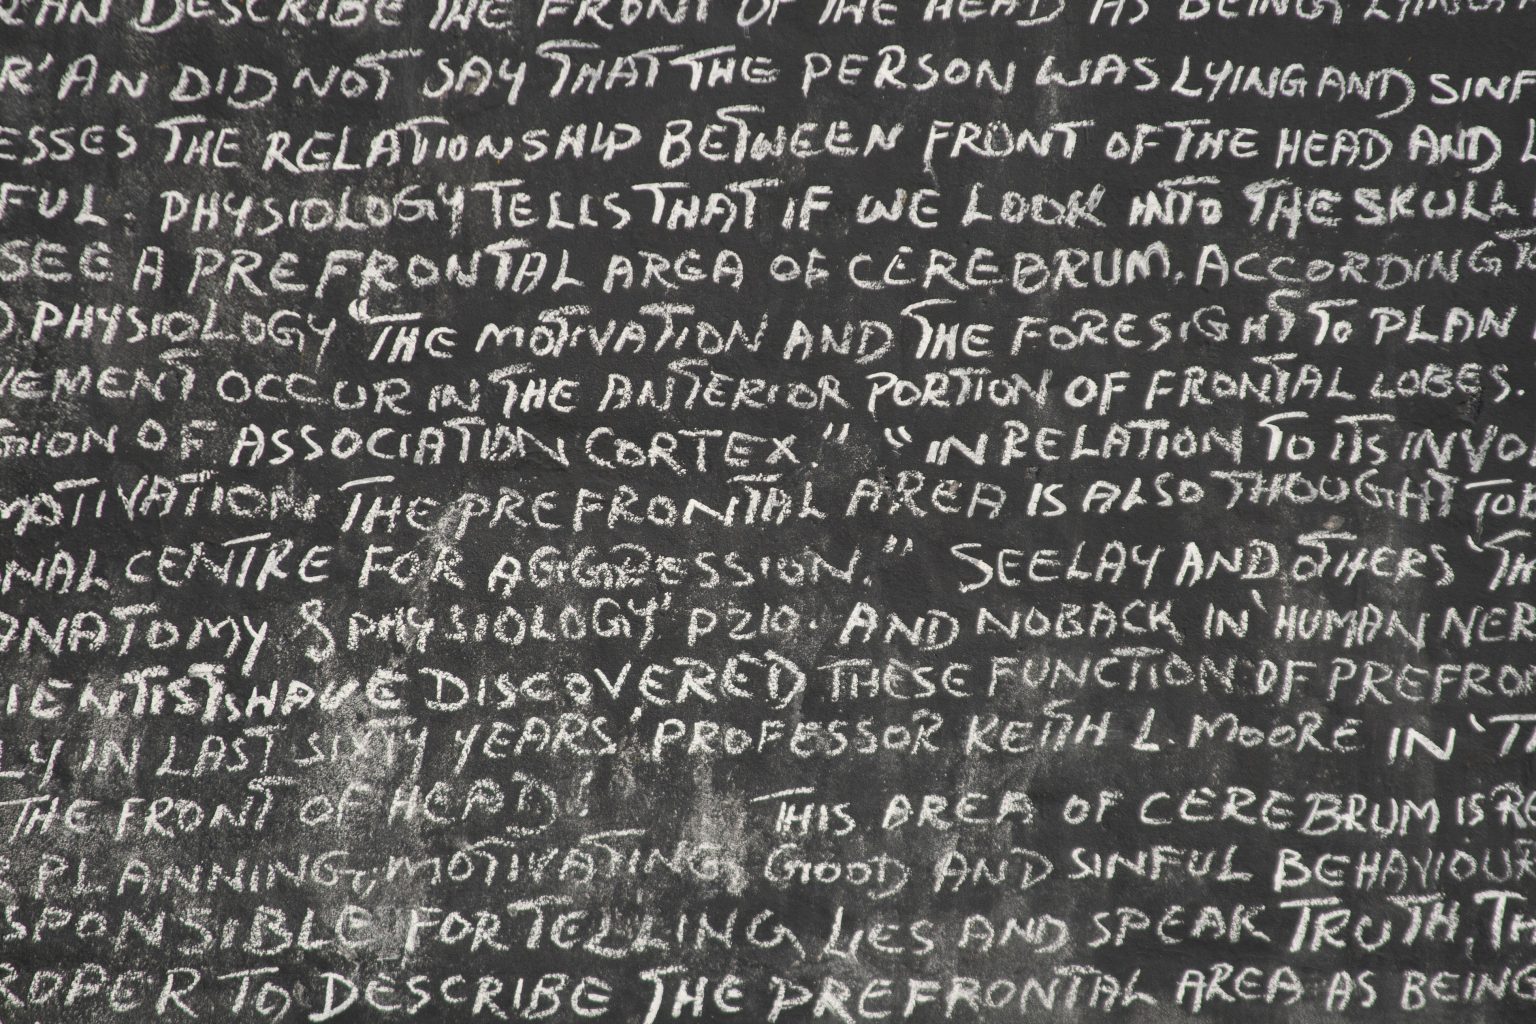 DESCRIBE THE FRONT OF THE HEAD AS BEING LYING
R'AN DID NOT SAY THAT THE PERSON WAS LYING AND SINF
ESSES THE RELATIONSHIP BETWEEN FRONT OF THE HEAD AND L
FUL. PHYSIOLOGY TELLS THAT IF WE LOOK INTO THE SKULL
SEE A PREFRONTAL AREA OF CEREBRUM. ACCORDING TO
D PHYSIOLOGY "THE MOTIVATION AND THE FORESIGHT TO PLAN
VEMENT OCCUR IN THE ANTERIOR PORTION OF FRONTAL LOBES.
GION OF ASSOCIATION CORTEX." "IN RELATION TO ITS INVO
MOTIVATION THE PREFRONTAL AREA IS ALSO THOUGHT TO B
NAL CENTRE FOR AGGRESSION." SEELAY AND OTHERS 'TH
ANATOMY & PHYSIOLOGY' P210. AND NOBACK IN 'HUMAN NER
IENTISTS HAVE DISCOVERED THESE FUNCTION OF PREFRON
LY IN LAST SIXTY YEARS, PROFESSOR KEITH L. MOORE IN 'T
THE FRONT OF HEAD! THIS AREA OF CEREBRUM IS
PLANNING, MOTIVATING GOOD AND SINFUL BEHAVIOUR
SPONSIBLE FOR TELLING LIES AND SPEAK TRUTH, TH
ROPER TO DESCRIBE THE PREFRONTAL AREA AS BEING